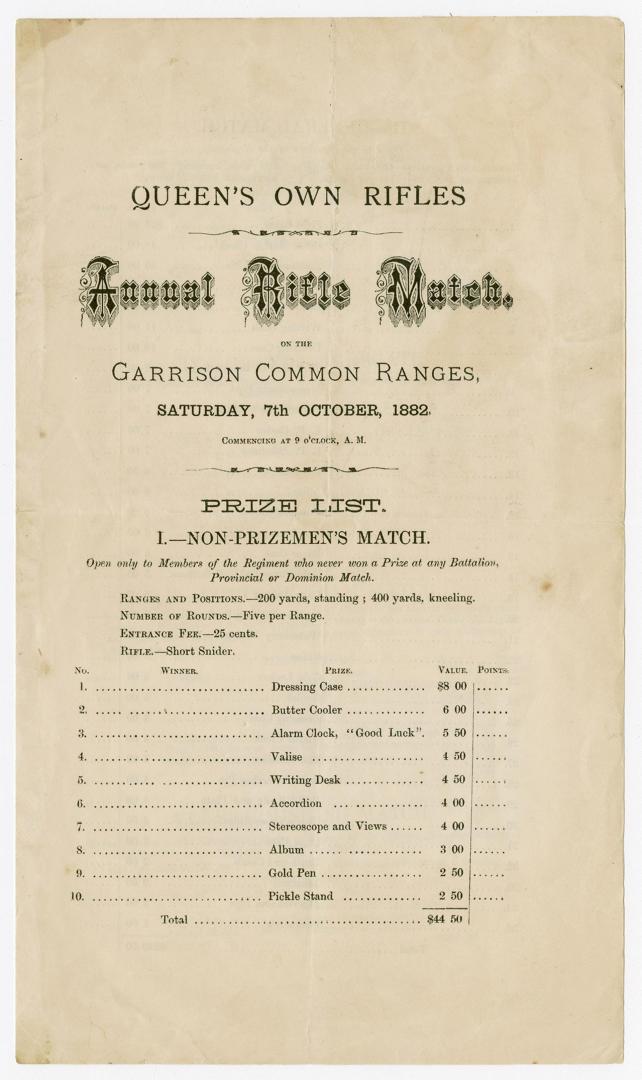 QUEEN'S OWN RIFLES
Annual Rifle Match.
ON THE
GARRISON COMMON RANGES,
SATURDAY, 7th OCTOBER, 1882.
COMMENCING AT 9 O'CLOCK, A. M.
PRIZE LIST.
I.—NON-PRIZEMEN'S MATCH.
Open only to Members of the Regiment who never won a Prize at any Battalion,
Provincial or Dominion Match.
RANGES AND POSITIONS.—200 yards, standing ; 400 yards, kneeling.
NUMBER OF ROUNDS.—Five per Range.
ENTRANCE FEE.—25 cents.
RIFLE.—Short Snider.
No. WINNER. PRIZE. VALUE. POINTS.
1. .............................. Dressing Case ............. $8 00 ......
2. .............................. Butter Cooler ............. 6 00 ......
3. .............................. Alarm Clock, "Good Luck". 5 50 ......
4. .............................. Valise .................... 4 50 ......
5. .............................. Writing Desk ............. 4 50 ......
6. .............................. Accordion ................ 4 00 ......
7. .............................. Stereoscope and Views ...... 4 00 ......
8. .............................. Album .................... 3 00 ......
9. .............................. Gold Pen .................. 2 50 ......
10. .............................. Pickle Stand ............. 2 50 ......
Total ........................................ $44 50